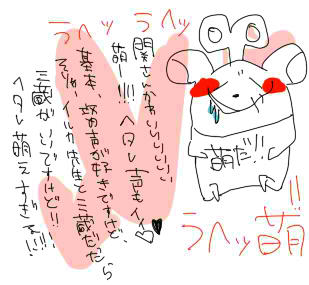 うへッ うへッ
関さんかわいいいいいい
萌ー!!!! ヘタレ声もイイ♡♥
基本、敬声が好きですけど、
そりゃ、イルカ先生と三蔵だたら
三蔵がいいですけど!!
ヘタレ萌えすぎる!!!!
萌だ!!
うへッ萌!!